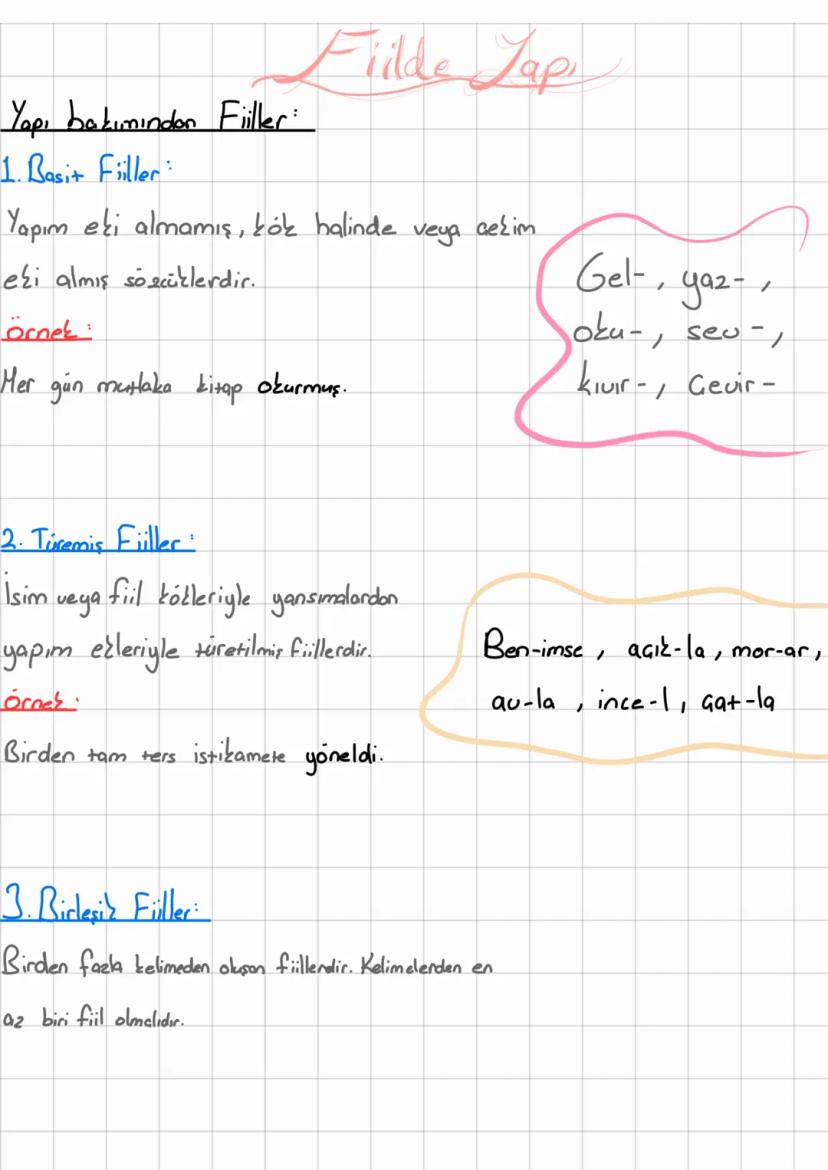 Fiilde Yapı
Yapı bakımından Fiiller:
1. Basit Fiiller:
Yapım eki almamış, kök halinde veya çekim
eki almış sözcüklerdir.
Örnek:
Her gün mutlaka kitap okurmuş.
Gel-, yaz-,
oku-, sev-,
kıvır-, Çevir-
2. Türemiş Fiiller:
İsim veya fiil kökleriyle yansımalardan
yapım ekleriyle türetilmiş fiillerdir.
Örnek:
Birden tam ters istikamete yöneldi.
Ben-imse, açık-la, mor-ar,
av-la, ince-l, çat-la
3. Birleşik Fiiller:
Birden fazla kelimeden oluşan fiillerdir. Kelimelerden en
az biri fiil olmalıdır.